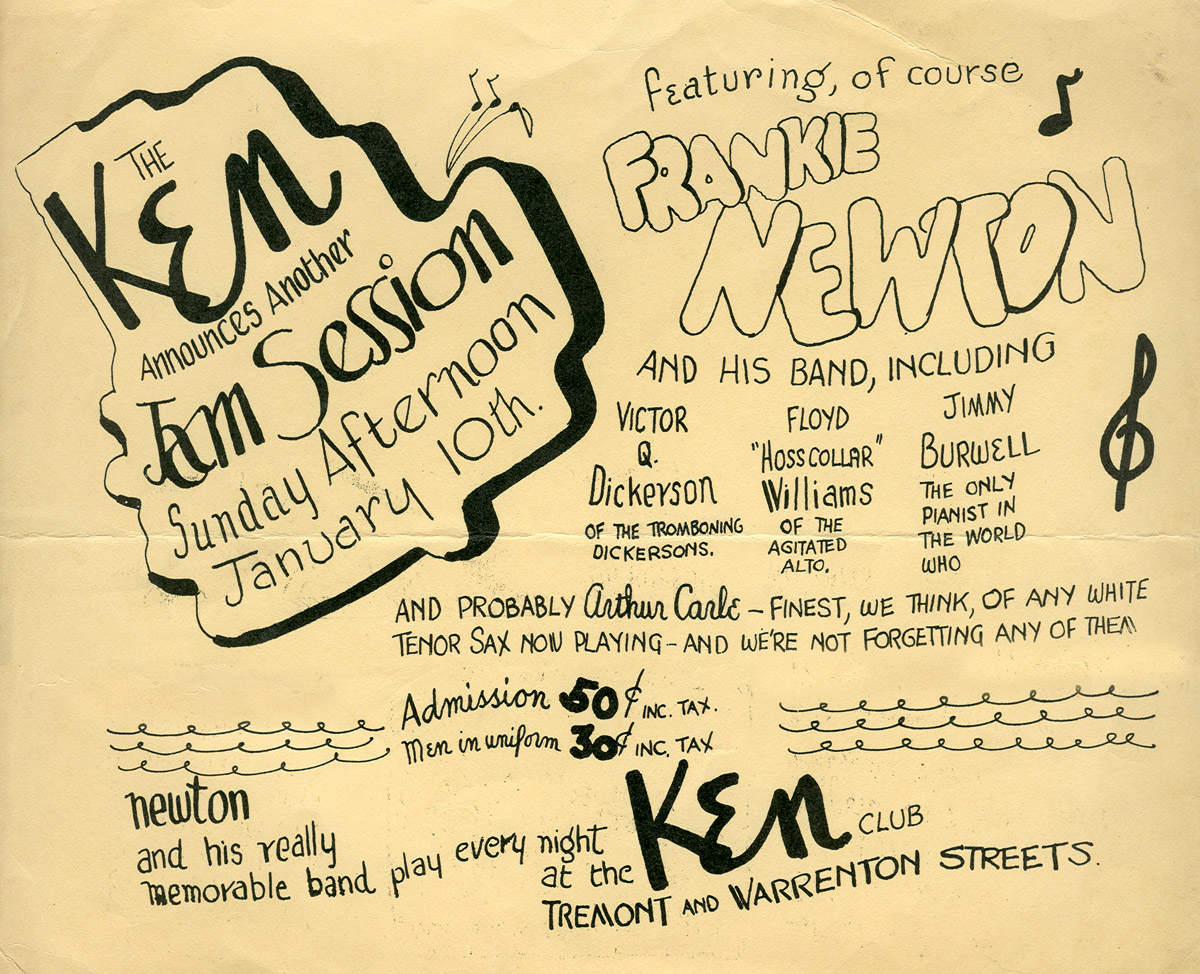 THE
KEN
Announces Another
Jam Session
Sunday Afternoon
January 10th.
featuring, of course
FRANKIE
NEWTON
AND HIS BAND, INCLUDING
VICTOR
Q.
Dickerson
OF THE TROMBONING
DICKERSONS.
FLOYD
"HOSSCOLLAR"
Williams
OF THE
AGITATED
ALTO.
JIMMY
BURWELL
THE ONLY
PIANIST IN
THE WORLD
WHO
AND PROBABLY Arthur Carle – FINEST, WE THINK, OF ANY WHITE
TENOR SAX NOW PLAYING – AND WE'RE NOT FORGETTING ANY OF THEM
Admission 50¢ INC. TAX.
Men in uniform 30¢ INC. TAX
newton
and his really
memorable band play every night
at the KEN CLUB
TREMONT AND WARRENTON STREETS.